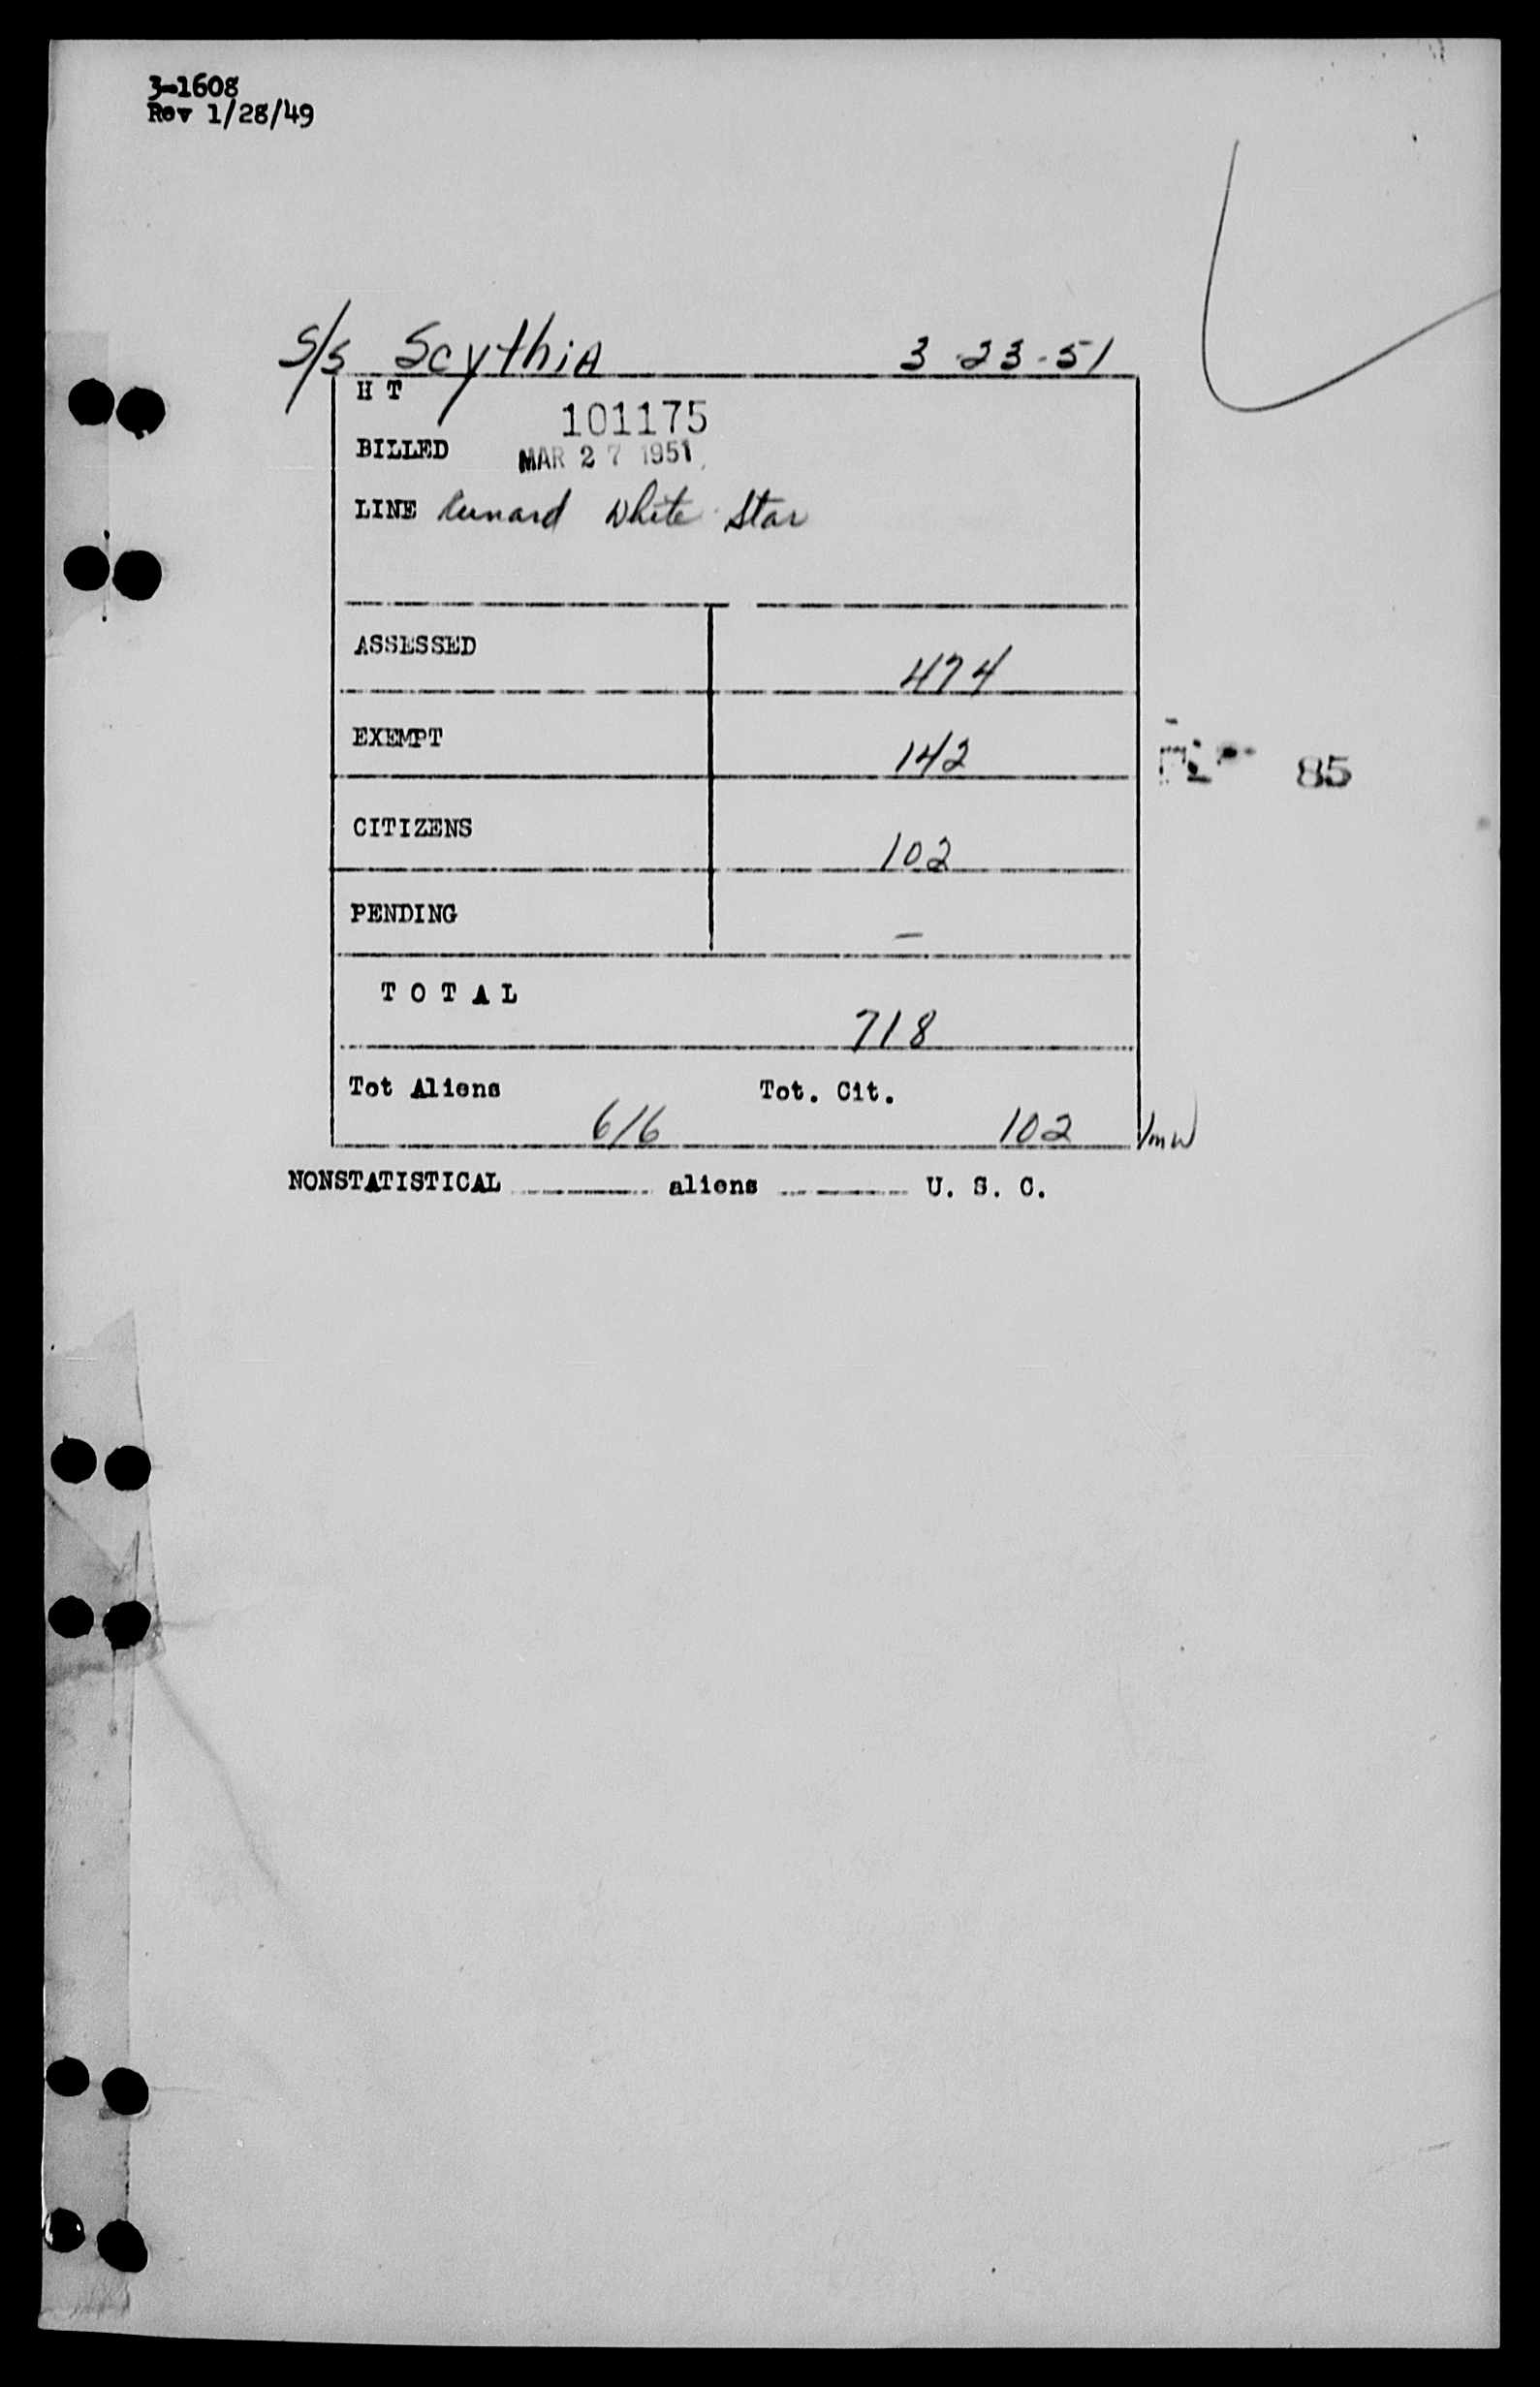 3-1608
Rev 1/28/49
S/S Scythia 3-23-51
H T
101175
BILLED MAR 27 1951
LINE Cunard White Star
ASSESSED 474
EXEMPT 142
85
CITIZENS 102
PENDING —
T O T A L 718
Tot Aliens 616 Tot. Cit. 102
NONSTATISTICAL aliens U. S. C.